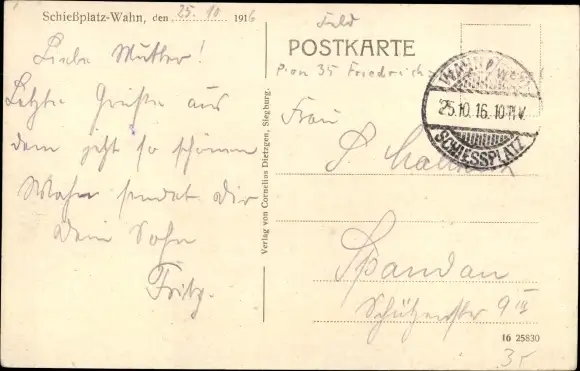 Schießplatz-Wahn, den 25. 10 1916
Liebe Mutter!
Letzte Grüße aus
dem jetzt so schönen
Wahn sendet Dir
Dein Sohn
Fritz.
Verlag von Cornelius Dietzgen, Siegburg.
Feld
POSTKARTE
Pion 35 Friedrich
WAHN
25.10.16. 10-11V.
SCHIESSPLATZ
Frau
Spandau
Schützenstr 9 III
16 25830
35